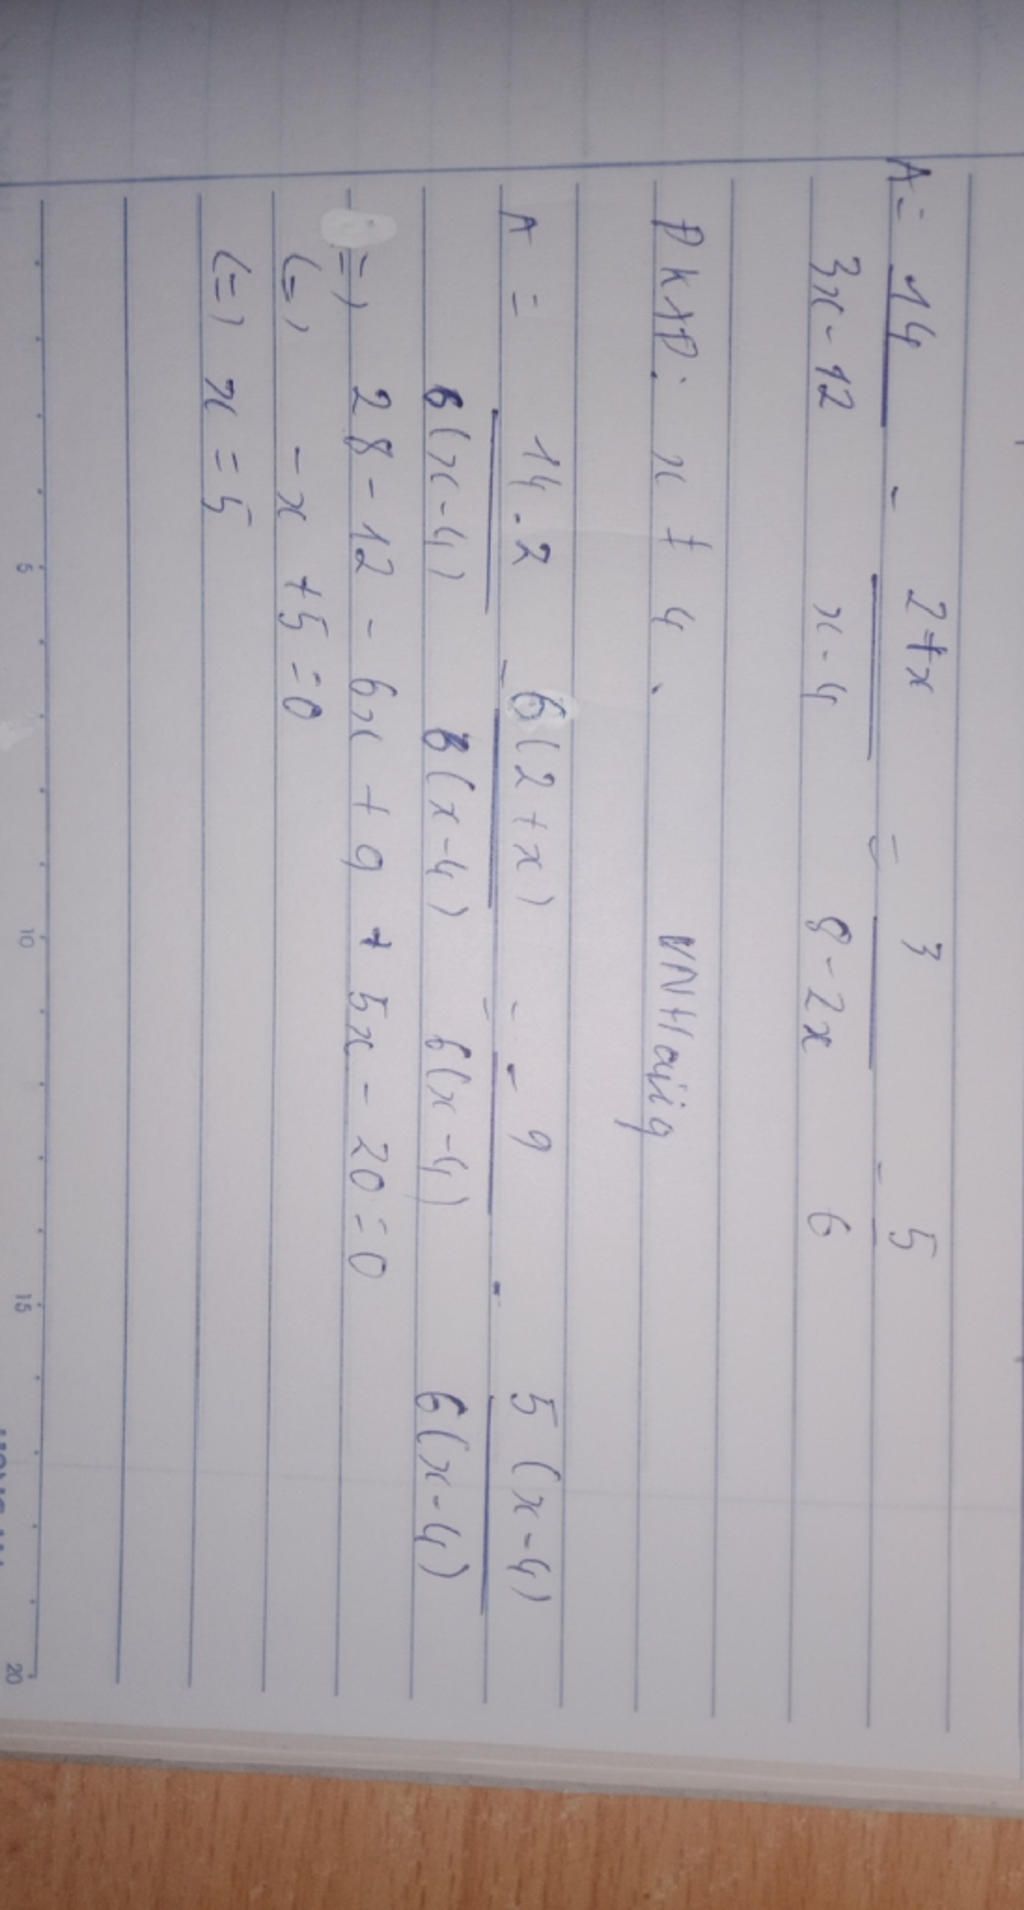 A = 14/(3x - 12) - (2+x)/(x - 4) = 3/(8 - 2x) - 5/6
ĐKXĐ: x ≠ 4.
A = 14.2/(6(x - 4)) - 6(2 + x)/(6(x - 4)) = -9/(6(x - 4)) - 5(x - 4)/(6(x - 4))
=) 28 - 12 - 6x + 9 + 5x - 20 = 0
(=) - x + 5 = 0
(=) x = 5
5 10 15 20